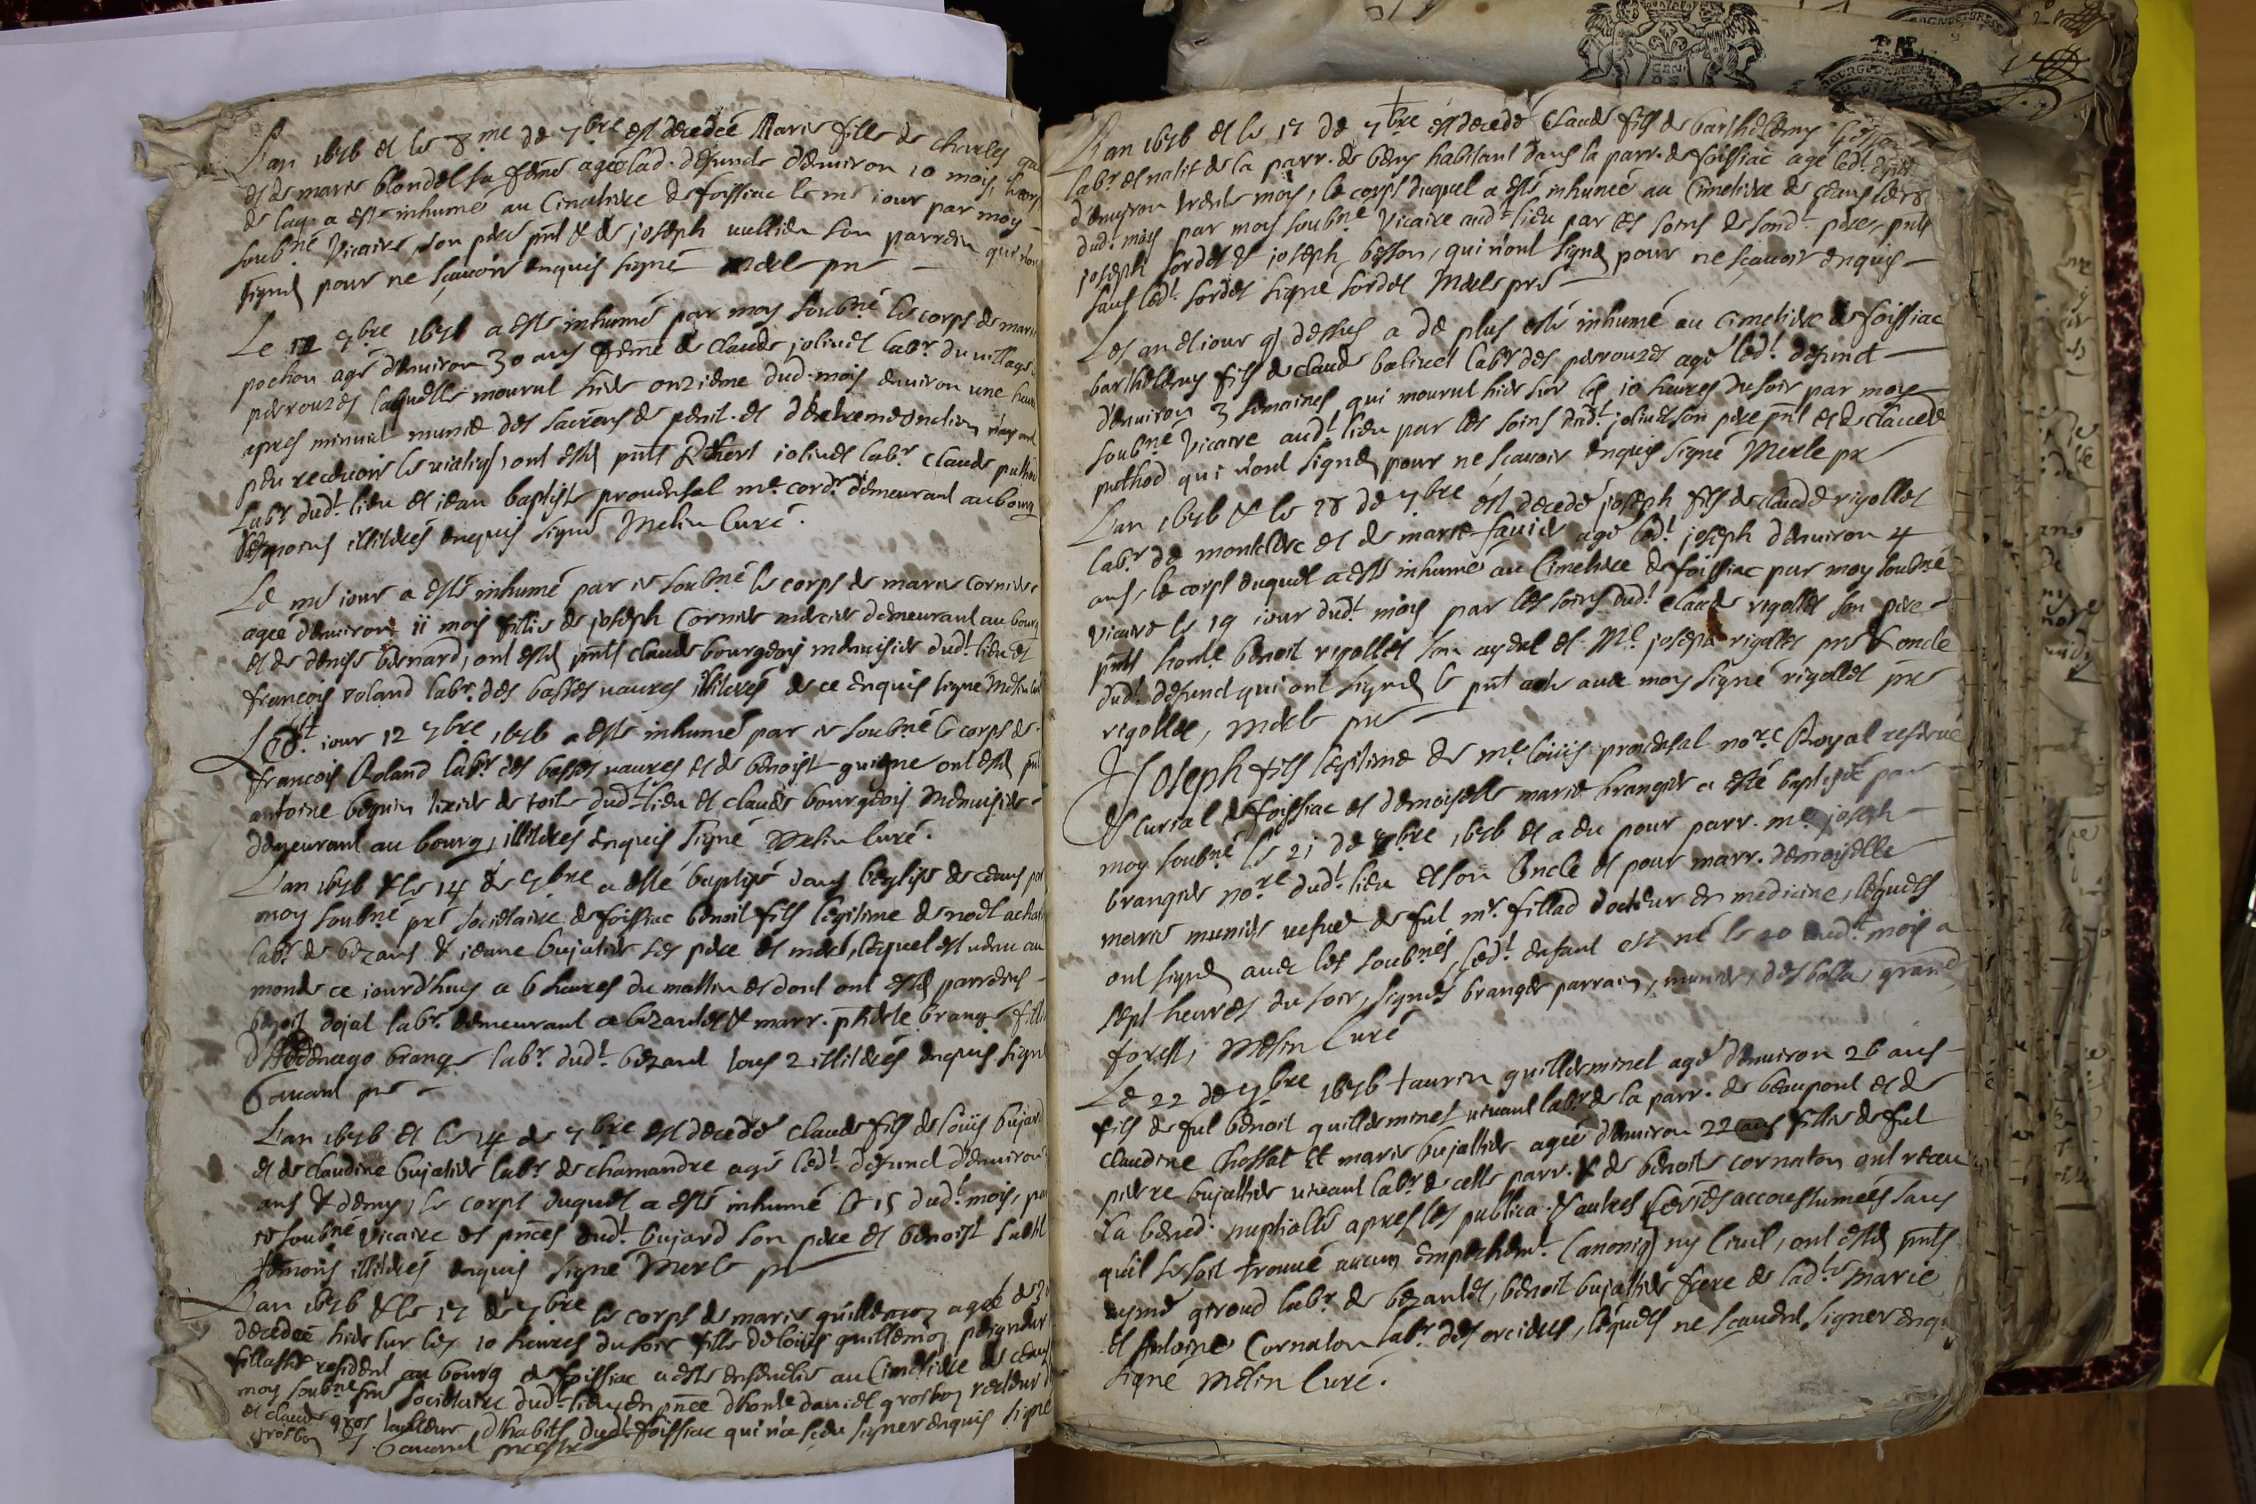 L'an 1676 et le 8me de 7bre est decedeé Marie fille de charles
et de marie blondel sa feme ageé lad. defunte d'environ 10 mois, le corps
de laq. a esté inhumé au Cimetiere de foissiac le me iour par moy
soubné Vicaire, son pere pnt & de joseph vullien son parrein qui n'ont
signé pour ne scavoir enquis signé Merle pre
Le 12 7bre 1676 a esté inhumé par moy soubné le corps de marie
pochon agé d'environ 30 ans feme de Claude joliuet labr. du village
perrouzes laquelle mourut hier onzieme dud. mois environ une heure
apres minuit munie des sacrens de penit. et d'extreme onction n'ayant
peu recevoir le viatiq, ont esté pnts Robert joliuet labr. Claude puthod
labr dudt. lieu et jean baptiste prouensal me. cordr. demeurant au bourg
tesmoins illiterés enquis signé Mesin Curé.
Le me iour a esté inhumé par ie soubné le corps de marie Corniere
ageé d'environ 11 mois fillie de joseph Cornier mercier demeurant au bourg
et de denise bernard, ont esté pnts claude bourgeois menuisier dudt. lieu et
francois roland labr. des basses vaures illiterés de ce enquis signé Mesin Curé
Ledt. iour 12 7bre 1676 a esté inhumé par ie soubné le corps de
francois Roland labr des basses vaures et de benoist guigne ont esté pnt
antoine beguin tixier de toile dudt. lieu et claude bourgeois Menuisier
demeurant au bourg, illiterés enquis signé Mesin Curé.
L'an 1676 & le 14 de 7bre a esté baptisé dans l'eglise de ceans par
moy soubné pre societaire de foissiac benoit fils legitime de noel
labr. de bezans & jeane bujatier ses pere et mere, lequel est venu au
monde ce jourd'huy a 6 heures du mattin et dont ont esté parreins
benoit dojat labr. demeurant a bezantes & marr. pierrette brang fille
labr. dudt. bezant tous 2 illiterés enquis signé
Gavand pre
L'an 1676 et le 14 de 7bre est decedé claude fils de loüis bujard
et de claudine bujatier labr. de chamandre agé ledt. defunct d'environ
ans & demy, le corps duquel a esté inhumé le 15 dudt. mois, par
ie soubné vicaire es pnces dudt. bujard son pere et benoist subtil
temoins illiterés enquis signé Merle pre
L'an 1676 & le 17 de 7bre le corps de marie guillemoz ageé de
decedeé hier sur les 10 heures du soir fille de loüis guillemoz peigneur
fillasse resident au bourg de foissiac a esté ensevelie au Cimetiere de ceans
moy soubné pre societaire dudt. lieu en pnce d'honte daniel grosboz recteur
et claude gros tailleur d'habits dudt. foissiac qui n'a sceu signer enquis signé
grosboz Gavand prestre
L'an 1676 et le 17 de 7bre est decedé Claude fils de barthelemy besson
labr. et natif de la parr. de beny habitant dans la parr. de foissiac agé ledt.
d'environ trente mois, le corps duquel a esté inhumé au Cimetiere de ceans le 18
dudt. mois par moy soubné Vicaire audt. lieu par les soins de sondt. pere, pnts
joseph sordet & joseph besson, qui n'ont signé pour ne scavoir enquis
sauf ledt. sordet signé sordet Merle pre
Les an et iour q dessus a de plus esté inhumé au cimetiere de foissiac
barthelemy fils de claude baliuet labr des perrouzes agé ledt. defunct
d'environ 3 semaines qui mourut hier sur les 10 heures du soir par moy
soubné Vicaire audt. lieu par les soins dudt. joliuet son pere pnt et de claude
puthod qui n'ont signé pour ne scavoir enquis signé Merle pr
L'an 1676 & le 18 de 7bre est decedé joseph fils de claude rigollet
labr. de montclerc et de marie favier agé ledt. joseph d'environ 4
ans, le corps duquel a esté inhumé au Cimetiere de foissiac par moy soubné
vicaire le 19 iour dudt. mois par les soins dudt. claude rigollet son pere
pnts honte. benoit rigollet son ayeul et Me. joseph rigollet pre & oncle
dudt. defunct qui ont signé le pnt acte avec moy signé rigollet pre
rigollet, Merle pre
Joseph fils legitime de me. loüis prouensal nore Royal reservé
et curial de foissiac et demoiselle marie brangier a esté baptisé par
moy soubné le 21 de 7bre 1676 et a eu pour parr. me. joseph
brangier nore dudt. lieu et son Oncle et pour marr. demoiselle
marie munier vefue de fut mr. fillad docteur en medicine, lequels
ont signé avec les soubnés, ledt. enfant est né le 20 dudt. mois a
sept heures du soir, signés branger parrain, munier, des bolla, grand,
forest, Mesin Curé
Le 22 de 7bre 1676 taurin guilleminet agé d'environ 26 ans
fils de fut benoit guilleminet vivant labr. de la parr. de beaupont et de
claudine Chossat et marie bujattier ageé d'environ 22 ans fillie de fut
pierre bujattier vivant labr. de cette parr. & de benoite cornaton ont receu
la bened. nuptialle apres les publica. & autres seriés accoustumeés sans
qu'il se soit trouvé aucun empechemt. Canoniq ny Civil, ont esté pnts
aymé giroud labr. de bezantet, benoit bujattier frere de ladte marie
et Antoine Cornaton labr. des orcieres, lequels ne scavent signer enquis
signé Mesin Curé.